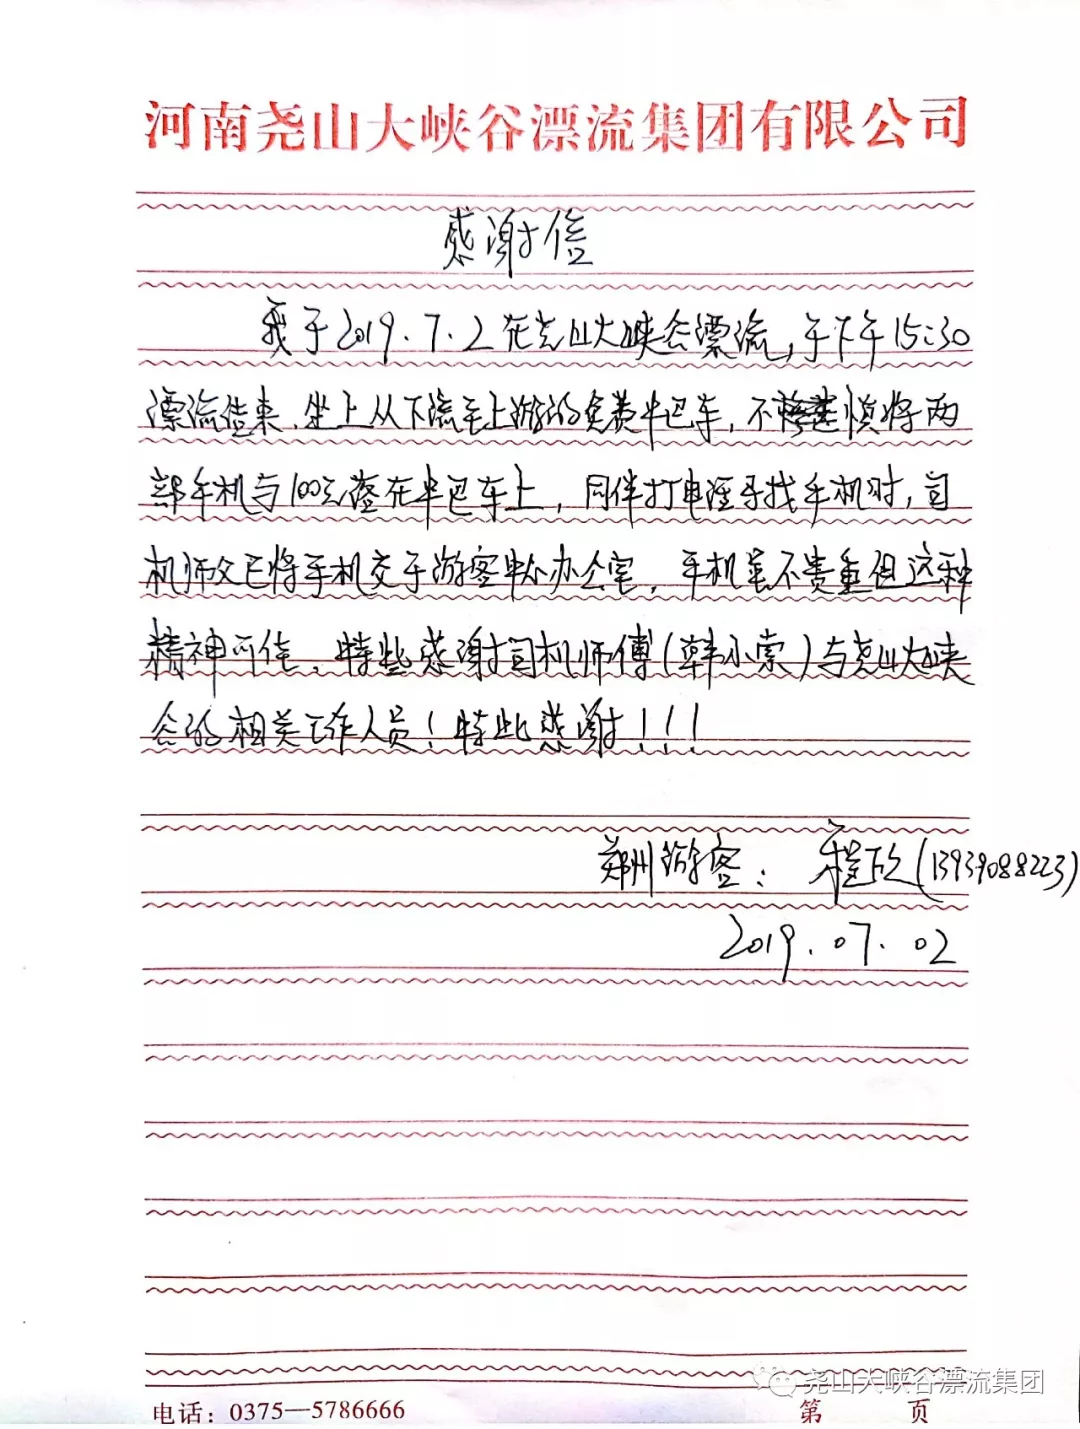 河南尧山大峡谷漂流集团有限公司
感谢信
我于2019.7.2在尧山大峡谷漂流,于下午15:30
漂流结束,坐上从下流至上游的免费中巴车,不慎将两
部手机与100元落在中巴车上,同伴打电话寻找手机时,司
机师父已将手机交于游客中心办公室,手机虽不贵重但这种
精神可佳。特些感谢司机师傅(韩小索)与尧山大峡
谷的相关工作人员!特此感谢!!!
郑州游客:程欣(13939088223)
2019.07.02
尧山大峡谷漂流集团
电话:0375—5786666 第 页